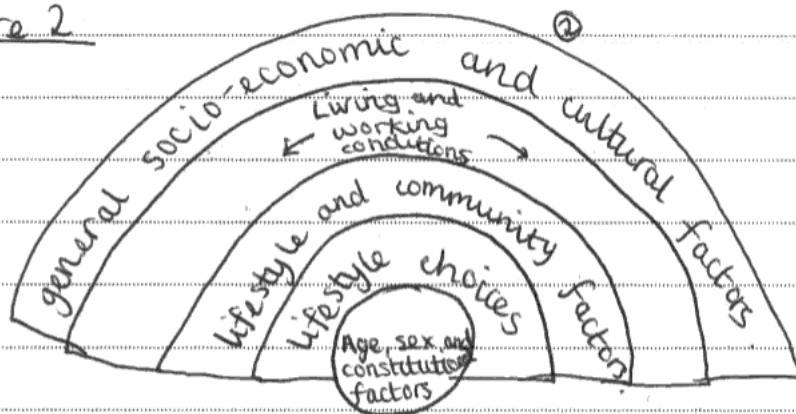 re 2
②
general socio-economic and cultural factors
Living and
working
conditions
lifestyle and community factors
lifestyle choices
Age, sex, and
constitutional
factors